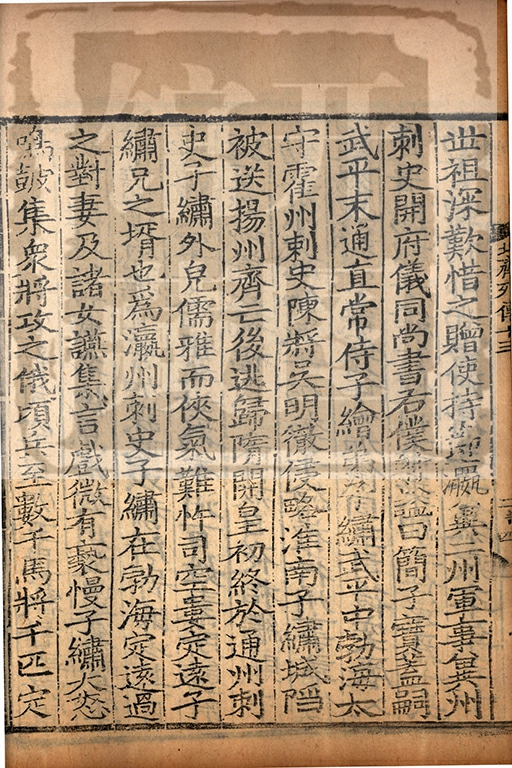 世祖深歎惜之贈使持節瀛冀二州軍事冀州
刺史開府儀同尚書右僕射謚曰簡子寶蓋嗣
武平末通直常侍子繪弟子繡武平中勃海太
守霍州刺史陳將吳明徹侵略淮南子繡城陷
被送揚州齊亡後逃歸隋開皇初終於通州刺
史子繡外兒儒雅而俠氣難忤司空婁定遠子
繡兄之壻也為瀛州刺史子繡在勃海定遠過
之對妻及諸女讌集言戲微有褻慢子繡大恚
鳴鼓集衆將攻之俄頃兵至數千馬將千匹定
北齊列傳十三